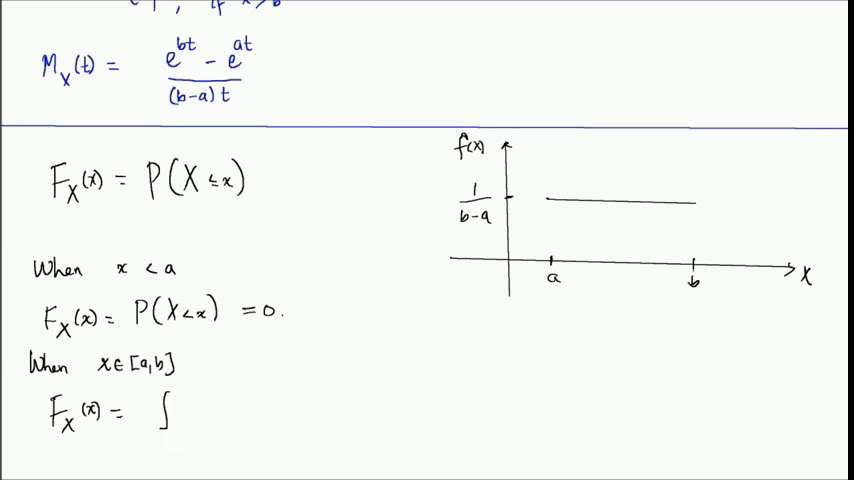 1, if x > b
M_X(t) = \frac{e^{bt} - e^{at}}{(b-a)t}
F_X(x) = P(X ≤ x)
When x < a
F_X(x) = P(X < x) = 0.
When x ∈ [a,b]
F_X(x) = ∫
f(x)
\frac{1}{b-a}
a
b
x